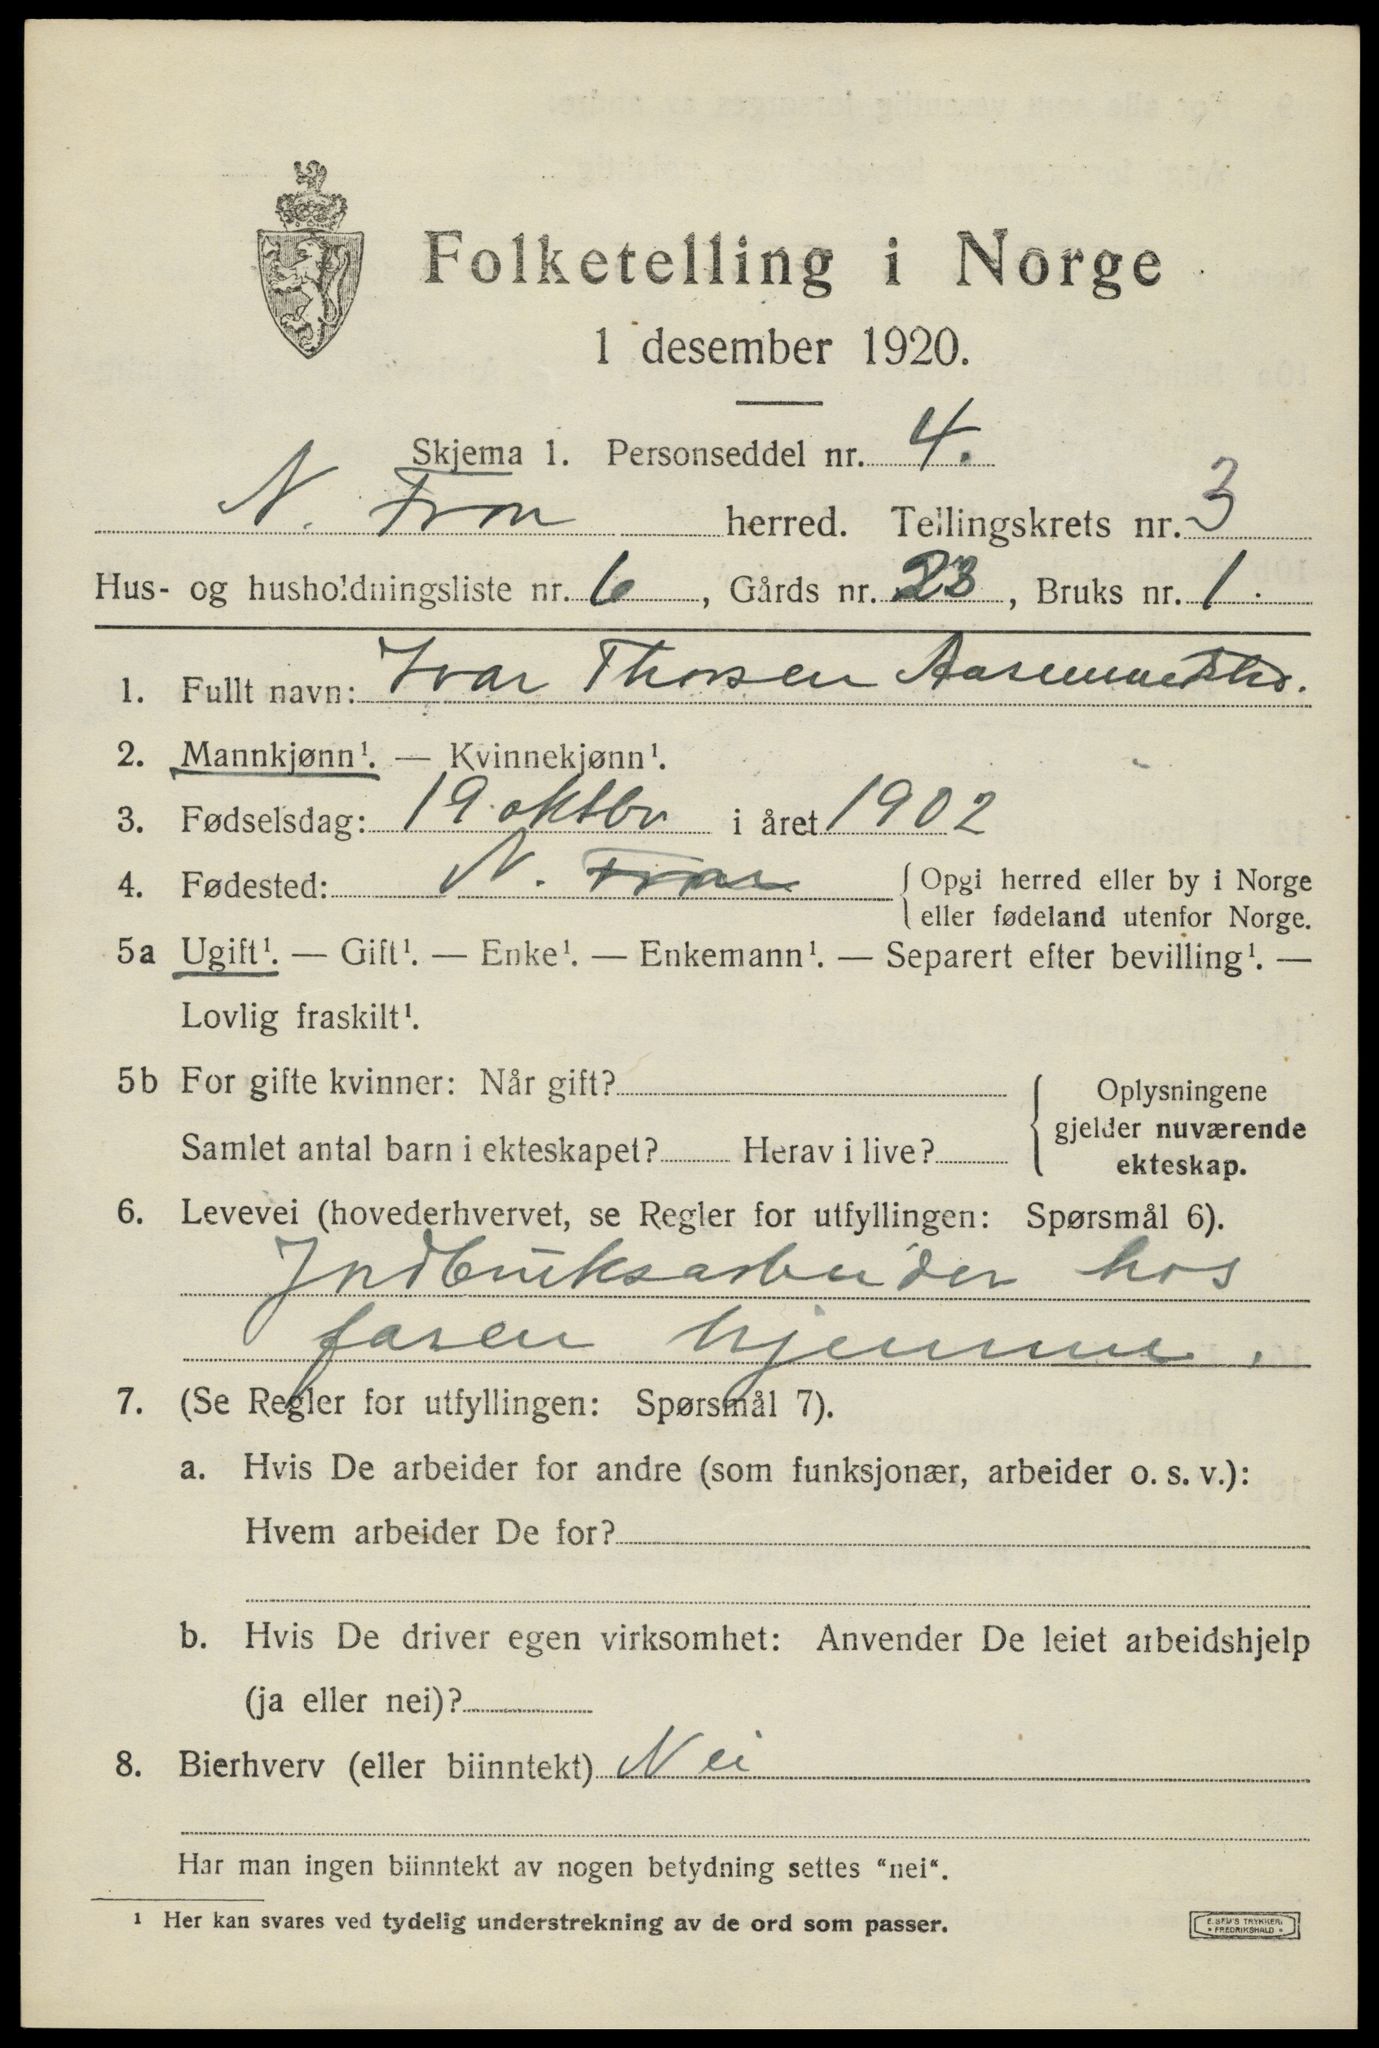 Folketelling i Norge
1 desember 1920.
Skjema 1. Personseddel nr. 4.
N. Fron herred. Tellingskrets nr. 3
Hus- og husholdningsliste nr. 6, Gårds nr. 23, Bruks nr. 1.
1. Fullt navn: Ivar Thorsen
2. Mannkjønn¹. — Kvinnekjønn¹.
3. Fødselsdag: 19 oktbr i året 1902
4. Fødested: N. Fron {Opgi herred eller by i Norge
eller fødeland utenfor Norge.
5a Ugift¹. — Gift¹. — Enke¹. — Enkemann¹. — Separert efter bevilling¹. —
Lovlig fraskilt¹.
5b For gifte kvinner: Når gift?
Samlet antal barn i ekteskapet? Herav i live?
Oplysningene
gjelder nuværende
ekteskap.
6. Levevei (hovederhvervet, se Regler for utfyllingen: Spørsmål 6).
Jordbruksarbeider hos
faren hjemme.
7. (Se Regler for utfyllingen: Spørsmål 7).
a. Hvis De arbeider for andre (som funksjonær, arbeider o. s. v.):
Hvem arbeider De for?
b. Hvis De driver egen virksomhet: Anvender De leiet arbeidshjelp
(ja eller nei)?
8. Bierhverv (eller biinntekt) Nei
Har man ingen biinntekt av nogen betydning settes "nei".
¹ Her kan svares ved tydelig understrekning av de ord som passer.
E. SEM'S TRYKKERI
• FREDRIKSHALD •